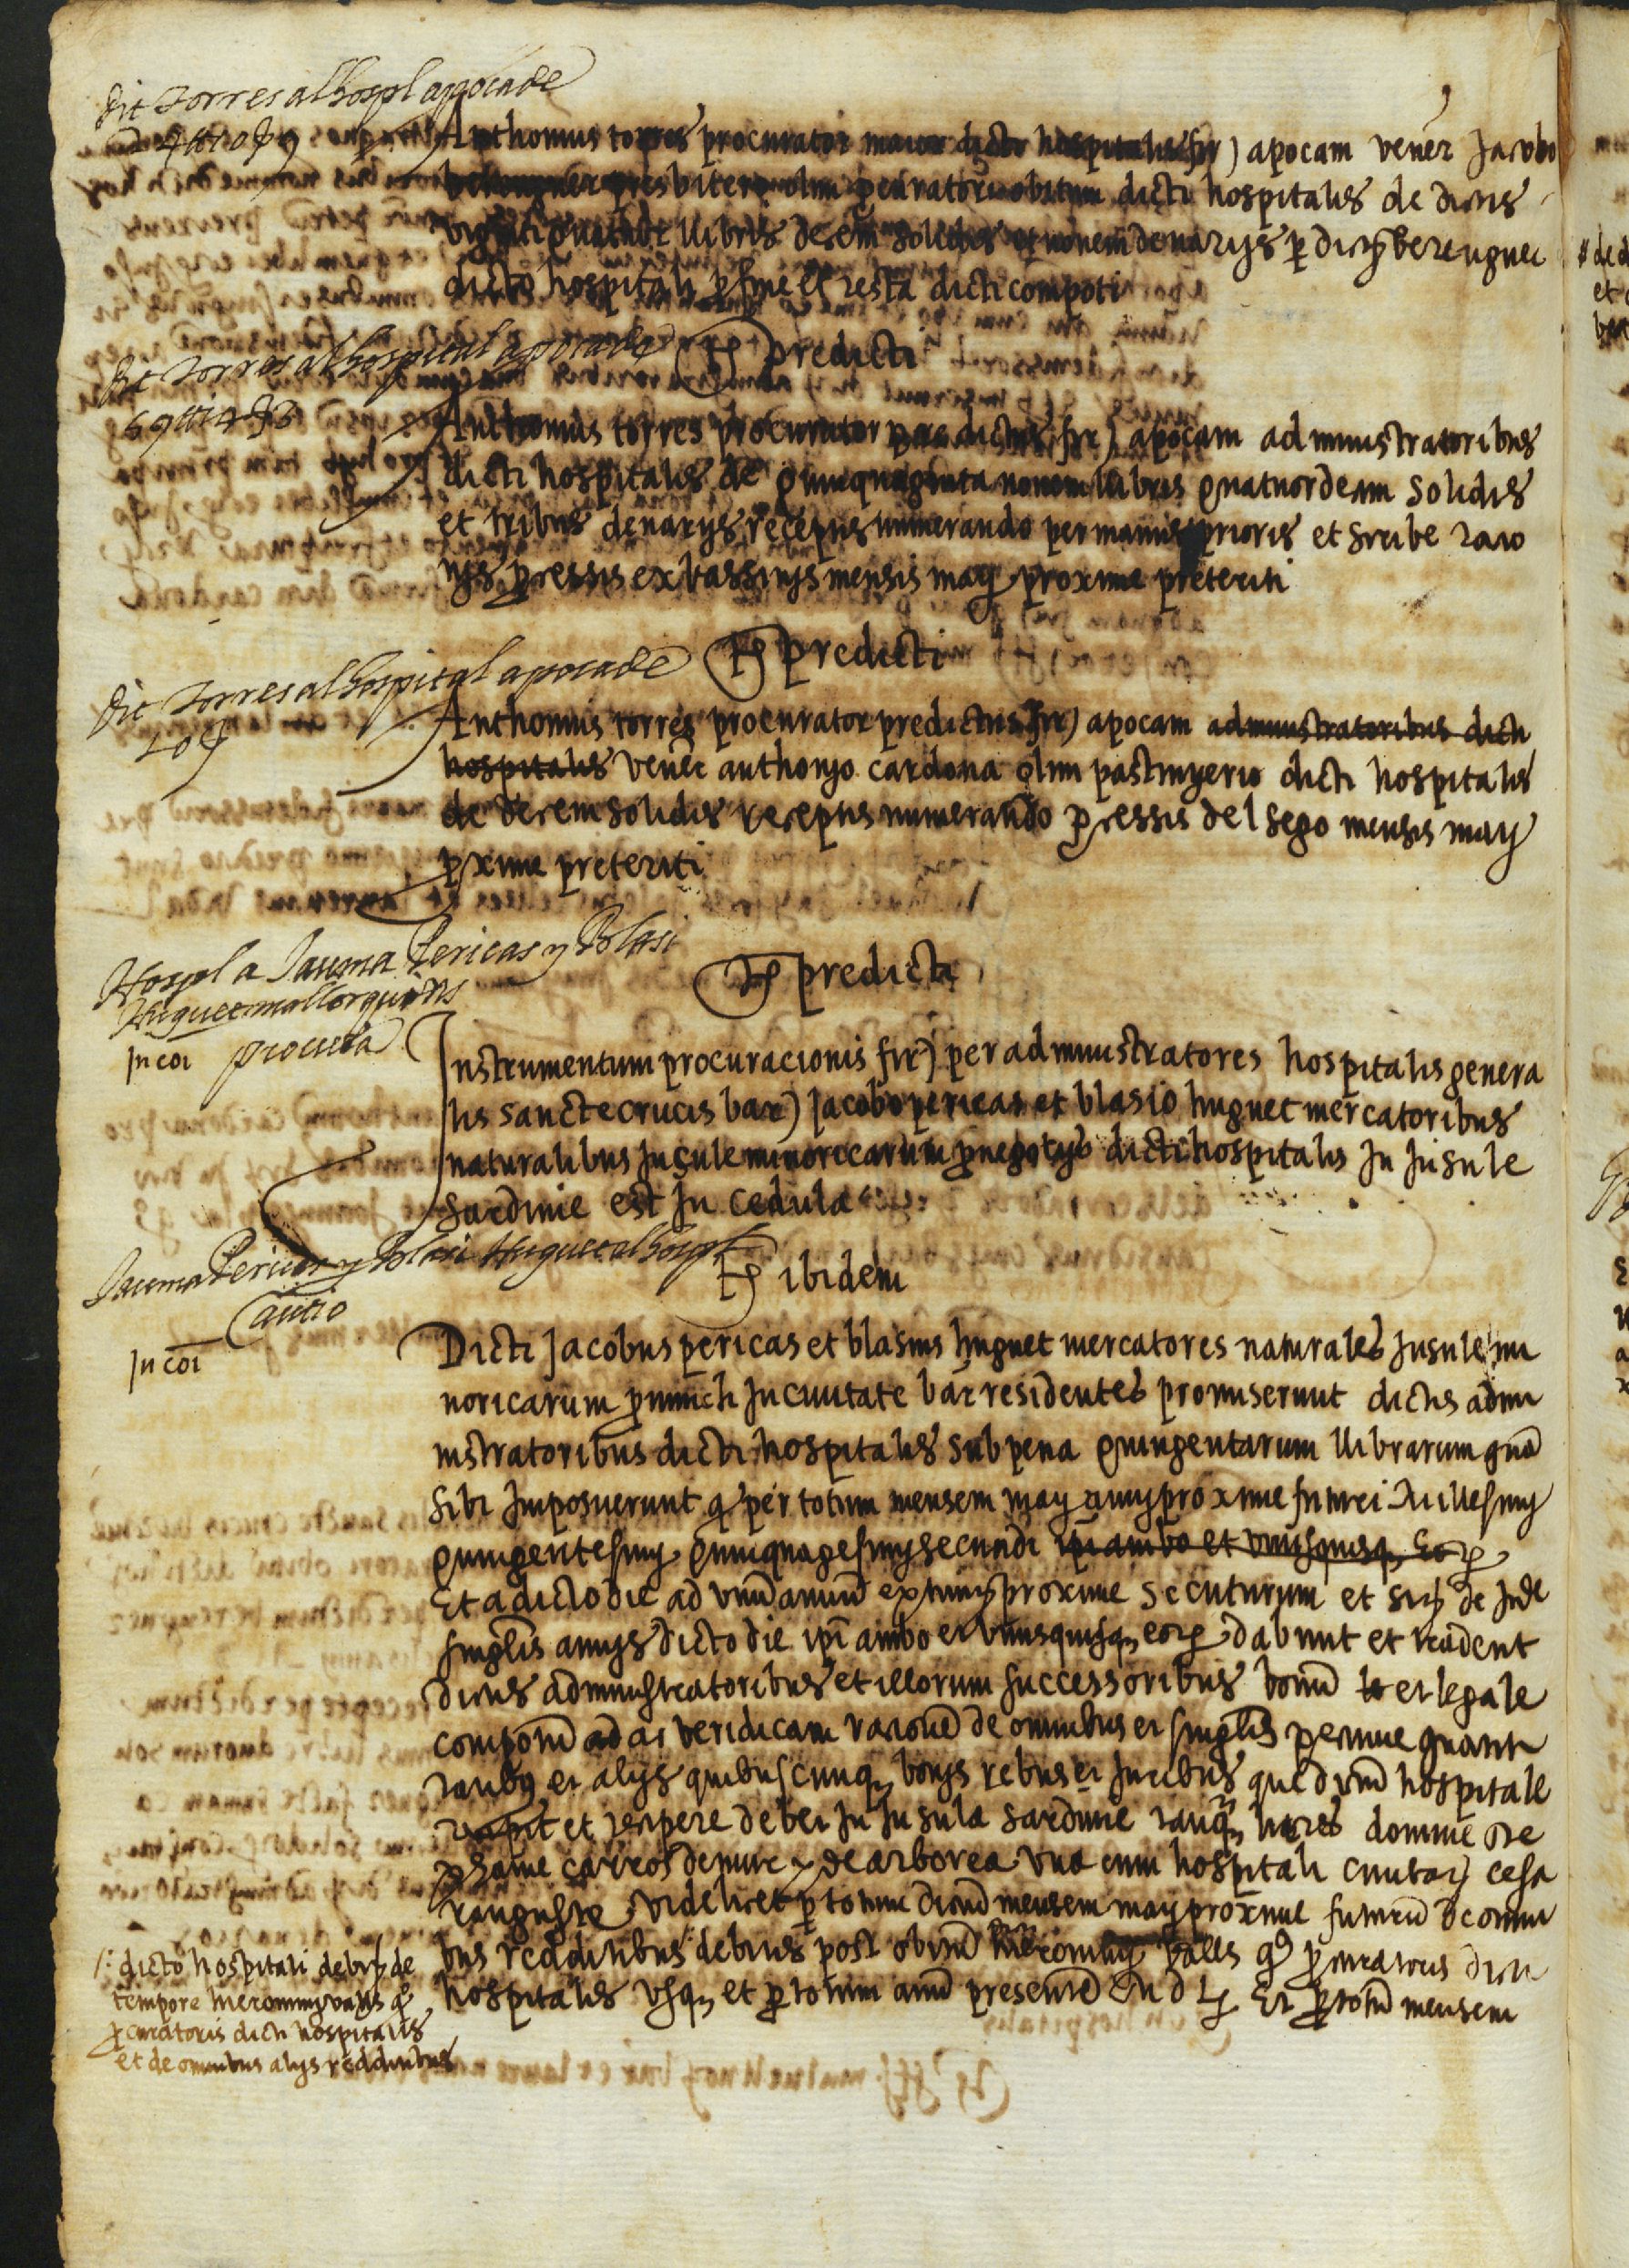 dit torres al hospl apoca de
Anthonius torres procurator maior dicti hospitalis fir) apocam vener Jacobo
berenguer presbitero olim peuratori obituum dicti hospitalis de dictis
viginti quatuor llibris decem solidis et novem denarijs per dictum berenguer
dicto hospitali per fine et resta dicti compoti
dit torres al hospital apoca de
Ts predicti
Anthonius torres procurator predictus fir) apocam administratoribus
dicti hospitalis de quinquaginta novem llibris quatuordecim solidis
et tribus denarijs receptis numerando per manus prioris et scribe racio
nis pressis ex bassinis mensis may proxime preteriti
dit torres al hospital apoca de
10 s
Ts predicti
Anthonius torres procurator predictus fir) apocam administratoribus dicti
hospitalis vener anthonyo cardona olim pastinyerio dicti hospitalis
de decem solidis receptis numerando pressis del sego mensis may
pxime preteriti
Hospl a Jauma Pericas y Blasi
Huguet mallorquins
procura
In coi
Ts predicti
Instrumentum procuracionis fir) per administratores hospitalis genera
lis sancte crucis bar) Jacobo pericas et blasio huguet mercatoribus
naturalibus Insule minoricarum pnegotys dicti hospitalis In Insule
Sardinie est In cedula
Jauma Pericas y Blasi Huguet al hospl
cautio
In coi
Ts ibidem
Dicti Jacobus pericas et blasius huguet mercatores naturales Insule mi
noricarum pnunch In civitate bar residentes promiserunt dictis admi
nistratoribus dicti hospitalis sub pena quingentarum llibrarum quam
sibi Imposuerunt q per totum mensem may anny proxime futuri Millesimy
quingentesimy quinquagesimy secundi ipi ambo et unusquisq eor
Et a dicto die ad unum annum extunc proxime secuturum et sic de Inde
singlis annys dicto die ipi ambo et unusquisq eor dabunt et reddent
dictis administratoribus et illorum successoribus bonum et legale
compotum ac veridicam racionem de omnibus et singlis pecunie quanti
tatibus et alys quibuscunq bonys rebus et Juribus que dictum hospitale
recipit et recipere debet In Insula Sardinie tanq heres domine de
carros de mur y de arborea una cum hospitali civitatis cesa
rauguste videlicet p totum dictum mensem may proxime futurum de omni
bus redditibus debitis post obitum hieronimy valls q pcuratoris dicti
hospitalis usq et p totum annum presentem M D Lj Et p totum mensem
/: dicto hospitali debitis de
tempore hieronimy valls q
pcuratoris dicti hospitalis
et de omnibus alys redditibus